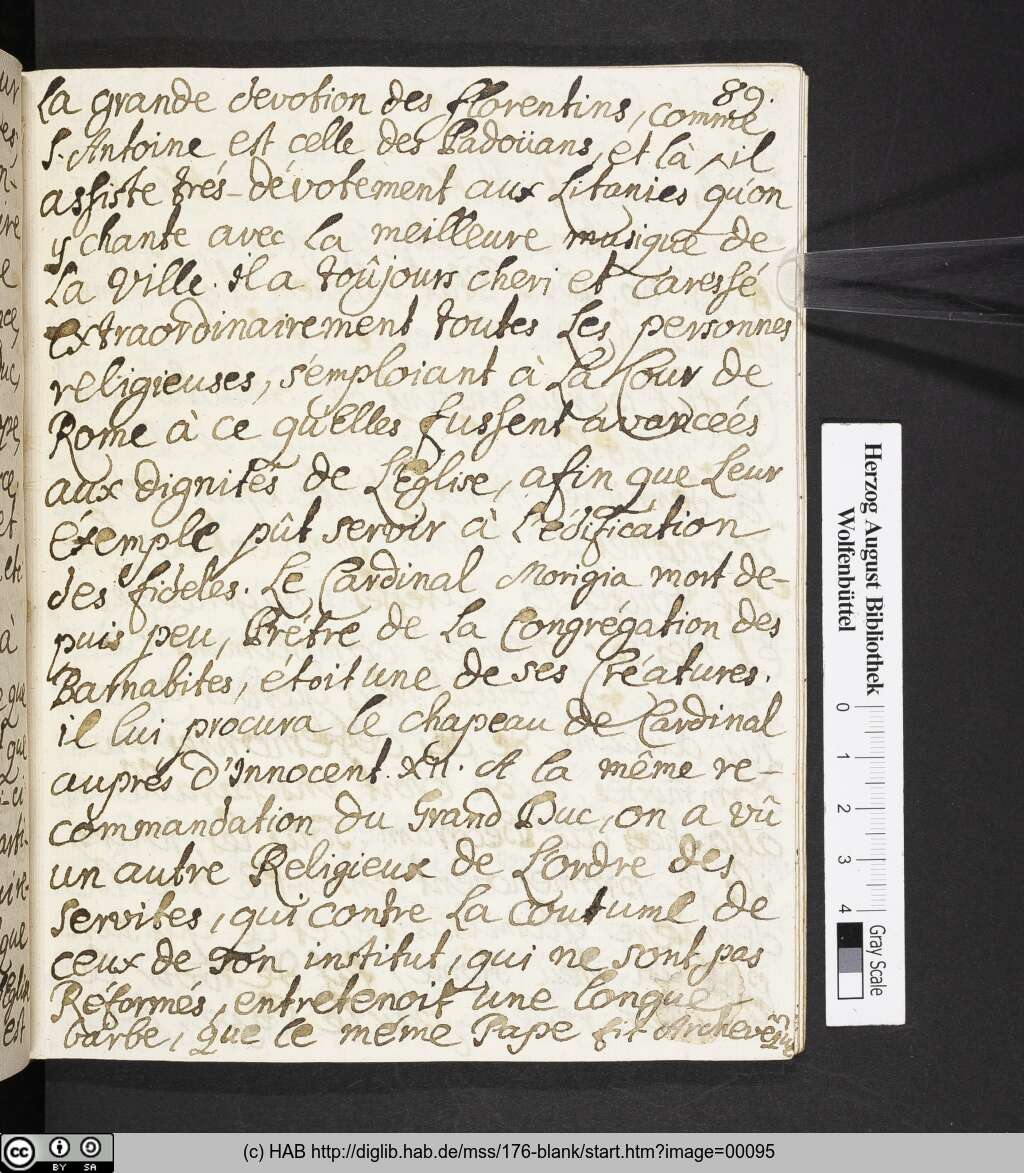 89.
La grande devotion des florentins, comme
S. Antoine est celle des Padoüans, et là, il
assiste trés-dévotement aux Litanies qu'on
y chante avec la meilleure musique de
La Ville. il a toûjours cheri et caressé
extraordinairement toutes Les personnes
religieuses, s'emploiant à La Cour de
Rome à ce qu'Elles fussent avanceés
aux dignités de L'Eglise, afin que Leur
éxemple pût servir à L'édification
des fideles. Le Cardinal Morigia mort de-
puis peu, Prétre de La Congrégation des
Barnabites, étoit une de ses Créatures.
il lui procura le chapeau de Cardinal
auprés d'Innocent XII. A la méme re-
commandation du Grand Duc, on a vû
un autre Religieux de L'ordre des
servites, qui contre La coutume de
ceux de son institut, qui ne sont pas
Réformés, entretenoit une longue
barbe, que le meme Pape fit Archevéque
Herzog August Bibliothek
Wolfenbüttel
0 1 2 3 4
Gray Scale
cc BY SA
(c) HAB http://diglib.hab.de/mss/176-blank/start.htm?image=00095